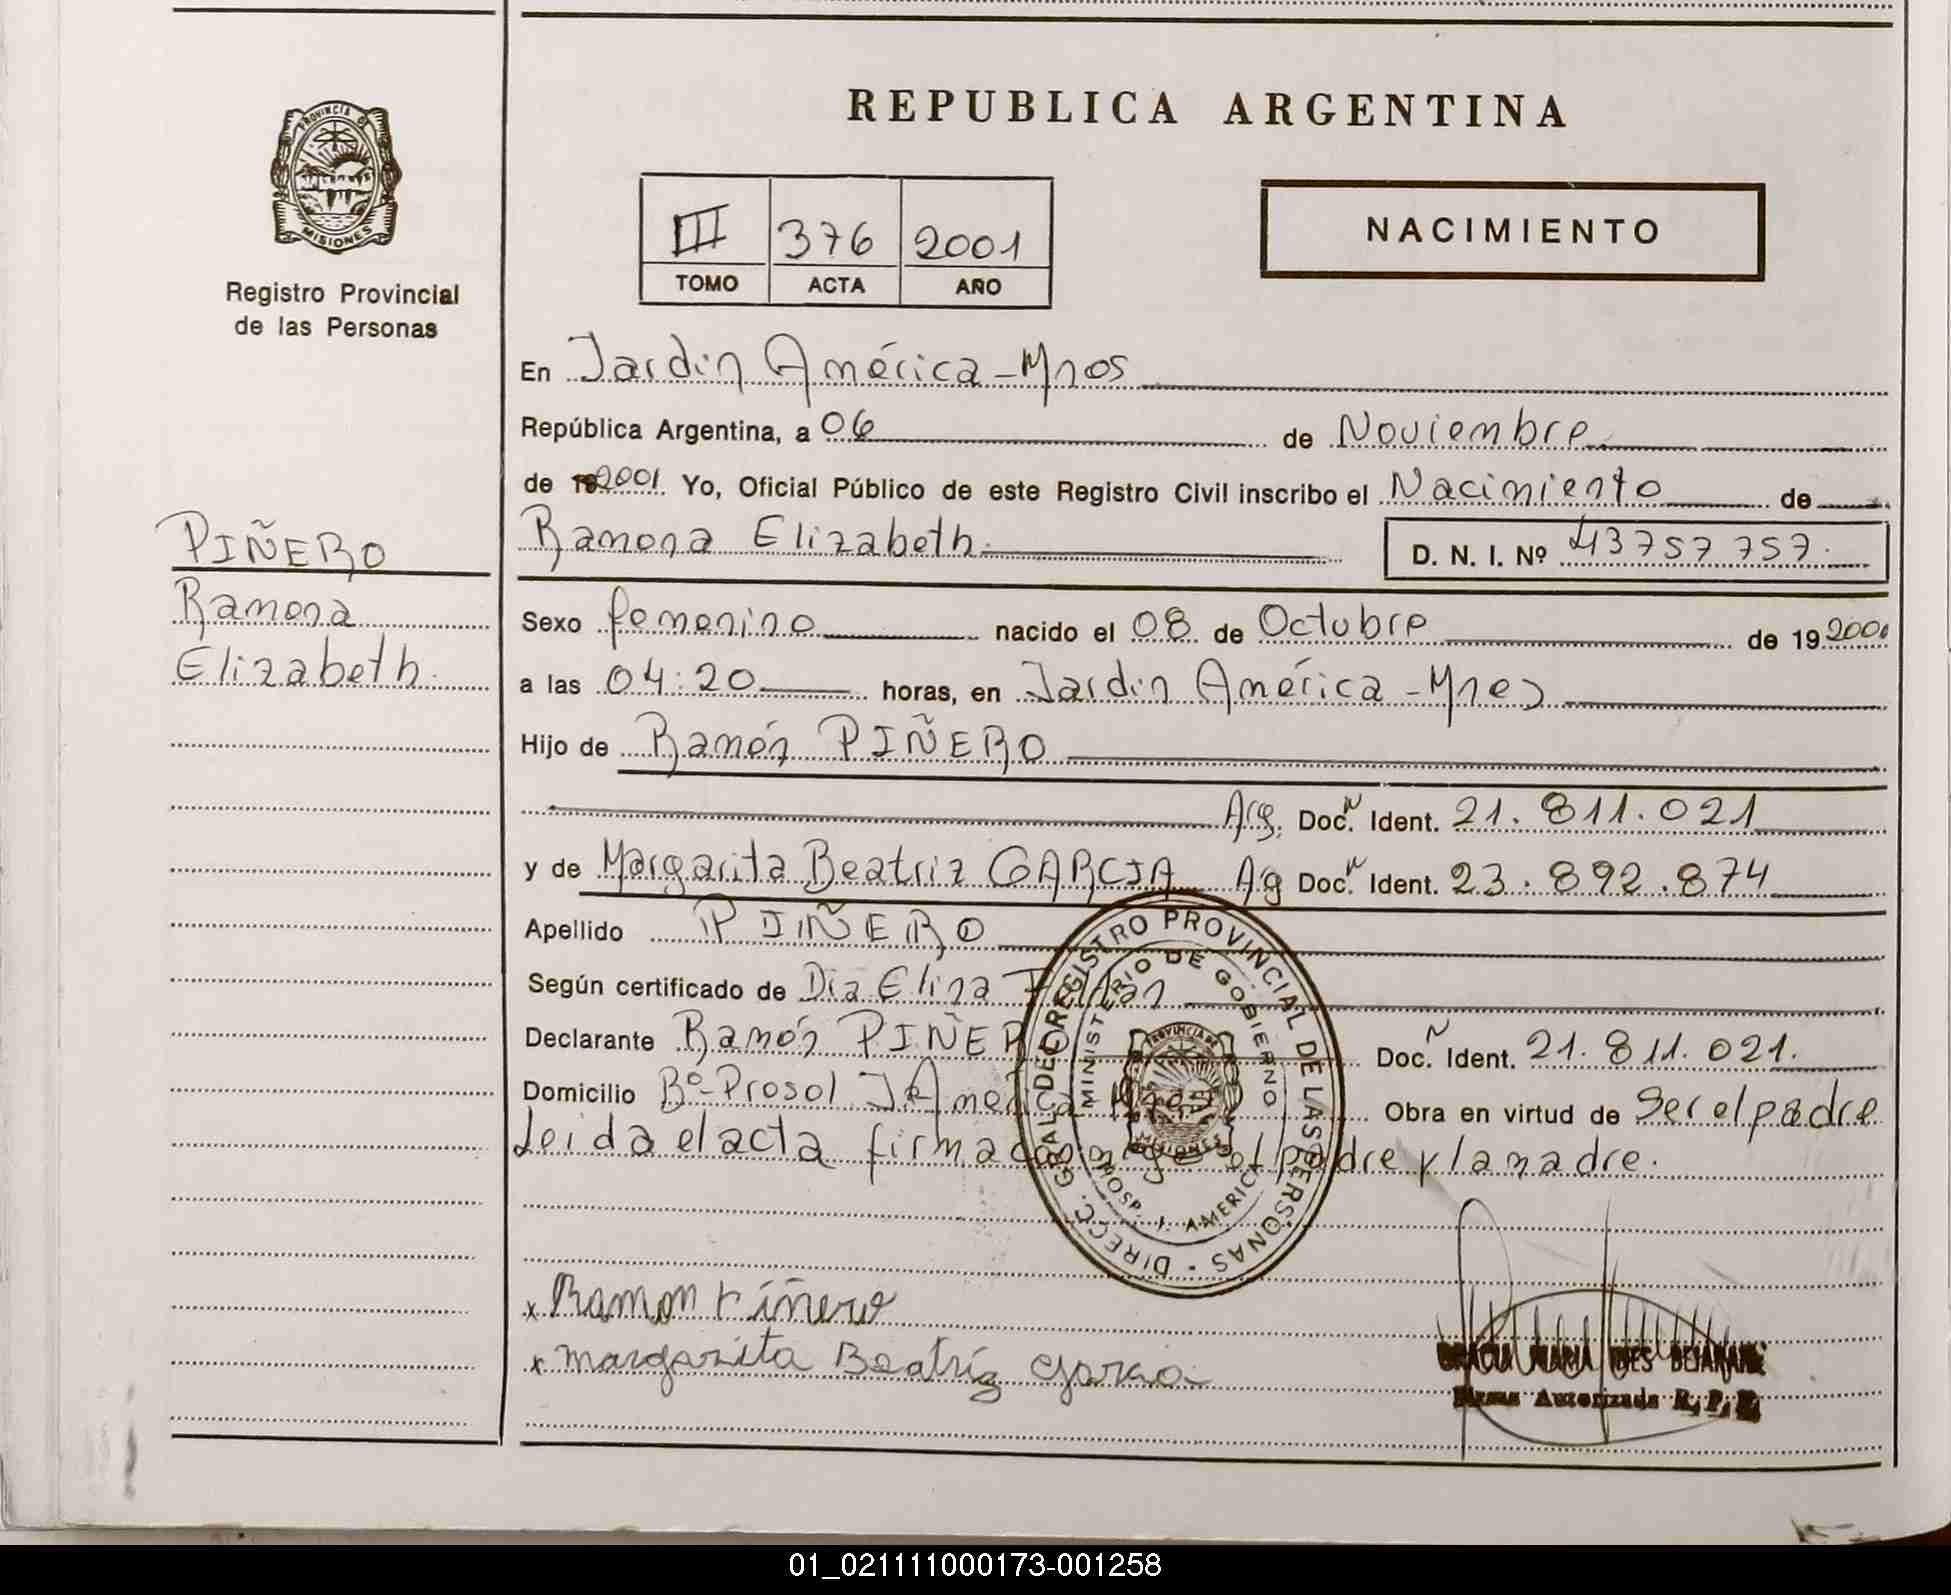 REPUBLICA ARGENTINA
PROVINCIA DE
MISIONES
Registro Provincial
de las Personas
III 376 2001
TOMO ACTA AÑO
NACIMIENTO
En Jardin América-Mnes
República Argentina, a 06 de Noviembre
de 19 2001 Yo, Oficial Público de este Registro Civil inscribo el Nacimiento de
Ramona Elizabeth. D. N. I. Nº 43757757.
PIÑERO
Ramona
Elizabeth.
Sexo femenino nacido el 08 de Octubre de 19 2001
a las 04:20 horas, en Jardin América-Mnes
Hijo de Ramón PIÑERO
Arg. Doc. N Ident. 21.811.021
y de Margarita Beatriz GARCIA Ag Doc. N Ident. 23.892.874
Apellido PIÑERO
Según certificado de Dra Elina
Declarante Ramón PIÑERO Doc. N Ident. 21.811.021.
Domicilio Bº-Prosol J América Obra en virtud de Ser el padre
Leida el acta firma el padre y la madre.
DIRECC. GRAL. DE REGISTRO PROVINCIAL DE LAS PERSONAS
MINISTERIO DE GOBIERNO
PROVINCIA DE
MISIONES
AMERICA
x Ramon Piñero
x margarita Beatríz garcia
MARIA INES
Firma Autorizada R. P. P.
01_021111000173-001258